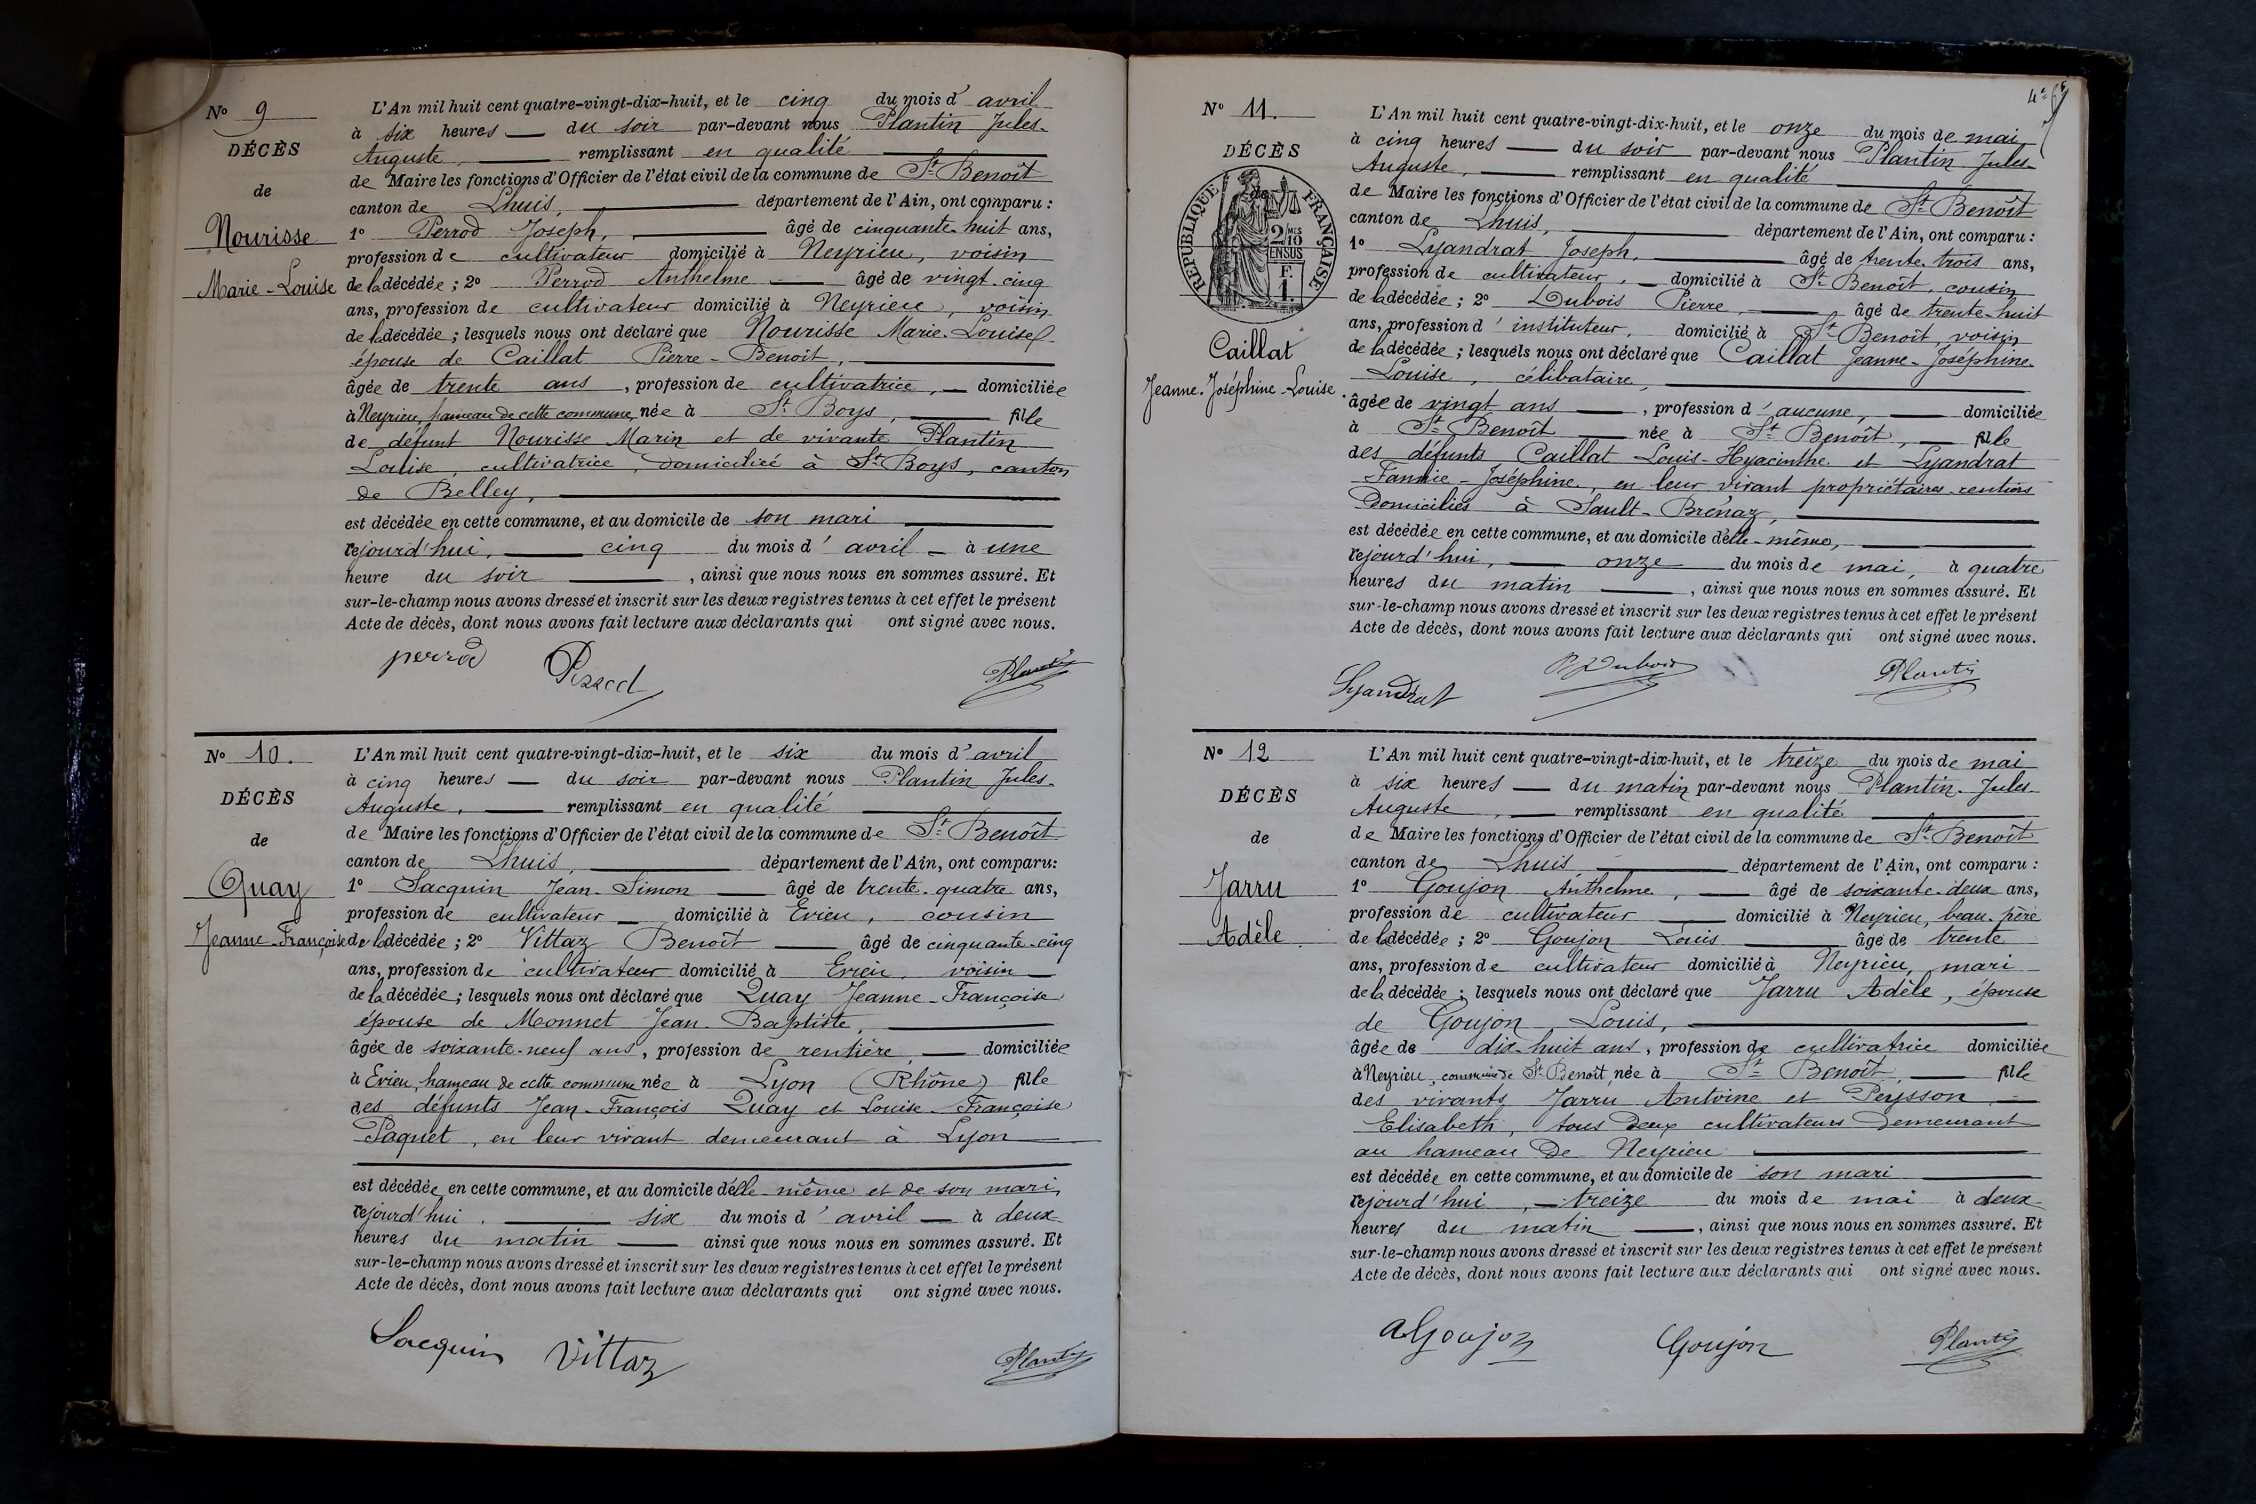 No 9
DÉCÈS
de
Nourisse
Marie-Louise
L'An mil huit cent quatre-vingt-dix-huit, et le cinq du mois d'avril
à six heures — du soir par-devant nous Plantin Jules-
Auguste, — remplissant en qualité
de Maire les fonctions d'Officier de l'état civil de la commune de St Benoît
canton de Lhuis, — département de l'Ain, ont comparu :
1o Perrod Joseph, — âgé de cinquante-huit ans,
profession de cultivateur domicilié à Neyrieu, voisin
de la décédée ; 2o Perrod Anthelme — âgé de vingt-cinq
ans, profession de cultivateur domicilié à Neyrieu, voisin
de la décédée ; lesquels nous ont déclaré que Nourisse Marie-Louise
épouse de Caillat Pierre-Benoit, —
âgée de trente ans, profession de cultivatrice, — domiciliée
à Neyrieu, hameau de cette commune, née à St Boys, — fille
de défunt Nourisse Marin et de vivante Plantin
Louise, cultivatrice, domiciliée à St Boys, canton
de Belley, —
est décédée en cette commune, et au domicile de son mari —
cejourd'hui, — cinq du mois d'avril — à une
heure du soir —, ainsi que nous nous en sommes assuré. Et
sur-le-champ nous avons dressé et inscrit sur les deux registres tenus à cet effet le présent
Acte de décès, dont nous avons fait lecture aux déclarants qui ont signé avec nous.
perrod Perrod Plantin
No 10.
DÉCÈS
de
Quay
Jeanne-Françoise
L'An mil huit cent quatre-vingt-dix-huit, et le six du mois d'avril
à cinq heures — du soir par-devant nous Plantin Jules-
Auguste, — remplissant en qualité —
de Maire les fonctions d'Officier de l'état civil de la commune de St Benoît
canton de Lhuis, — département de l'Ain, ont comparu:
1o Sacquin Jean-Simon — âgé de trente-quatre ans,
profession de cultivateur — domicilié à Evieu, cousin
de la décédée ; 2o Vittaz Benoît — âgé de cinquante-cinq
ans, profession de cultivateur domicilié à Evieu, voisin —
de la décédée ; lesquels nous ont déclaré que Quay Jeanne-Françoise
épouse de Monnet Jean-Baptiste, —
âgée de soixante-neuf ans, profession de rentière, — domiciliée
à Evieu, hameau de cette commune née à Lyon (Rhône) fille
des défunts Jean-François Quay et Louise-Françoise
Paquet, en leur vivant demeurant à Lyon —
est décédée en cette commune, et au domicile d'elle-même et de son mari,
cejourd'hui, — six du mois d'avril — à deux
heures du matin — ainsi que nous nous en sommes assuré. Et
sur-le-champ nous avons dressé et inscrit sur les deux registres tenus à cet effet le présent
Acte de décès, dont nous avons fait lecture aux déclarants qui ont signé avec nous.
Sacquin Vittaz Plantin
4e
No 11.
DÉCÈS
de
RÉPUBLIQUE FRANÇAISE
2/10 MES
EN SUS
F. 1.
Caillat
Jeanne-Joséphine-Louise
L'An mil huit cent quatre-vingt-dix-huit, et le onze du mois de mai
à cinq heures — du soir par-devant nous Plantin Jules-
Auguste, — remplissant en qualité —
de Maire les fonctions d'Officier de l'état civil de la commune de St Benoît
canton de Lhuis, — département de l'Ain, ont comparu :
1o Lyandrat Joseph, — âgé de trente-trois ans,
profession de cultivateur, — domicilié à St Benoît, cousin
de la décédée ; 2o Dubois Pierre, — âgé de trente-huit
ans, profession d'instituteur, domicilié à St Benoît, voisin
de la décédée ; lesquels nous ont déclaré que Caillat Jeanne-Joséphine-
Louise, célibataire, —
âgée de vingt ans —, profession d'aucune, — domiciliée
à St Benoît — née à St Benoît, — fille
des défunts Caillat Louis-Hyacinthe et Lyandrat
Fannie-Joséphine, en leur vivant propriétaires-rentiers
domiciliés à Sault-Brénaz, —
est décédée en cette commune, et au domicile d'elle-même, —
cejourd'hui, — onze — du mois de mai, à quatre
heures du matin —, ainsi que nous nous en sommes assuré. Et
sur-le-champ nous avons dressé et inscrit sur les deux registres tenus à cet effet le présent
Acte de décès, dont nous avons fait lecture aux déclarants qui ont signé avec nous.
Lyandrat P Dubois Plantin
No 12
DÉCÈS
de
Jarru
Adèle
L'An mil huit cent quatre-vingt-dix-huit, et le treize du mois de mai
à six heures — du matin par-devant nous Plantin Jules-
Auguste, — remplissant en qualité —
de Maire les fonctions d'Officier de l'état civil de la commune de St Benoît
canton de Lhuis — département de l'Ain, ont comparu :
1o Goujon Anthelme, — âgé de soixante-deux ans,
profession de cultivateur — domicilié à Neyrieu, beau-père
de la décédée ; 2o Goujon Louis — âgé de trente
ans, profession de cultivateur domicilié à Neyrieu, mari
de la décédée ; lesquels nous ont déclaré que Jarru Adèle, épouse
de Goujon Louis, —
âgée de dix-huit ans, profession de cultivatrice domiciliée
à Neyrieu, commune de St Benoît, née à St Benoît, — fille
des vivants Jarru Antoine et Peysson —
Elisabeth, tous deux cultivateurs demeurant
au hameau de Neyrieu —
est décédée en cette commune, et au domicile de son mari —
cejourd'hui, — treize du mois de mai à deux
heures du matin —, ainsi que nous nous en sommes assuré. Et
sur-le-champ nous avons dressé et inscrit sur les deux registres tenus à cet effet le présent
Acte de décès, dont nous avons fait lecture aux déclarants qui ont signé avec nous.
A Goujon Goujon Plantin